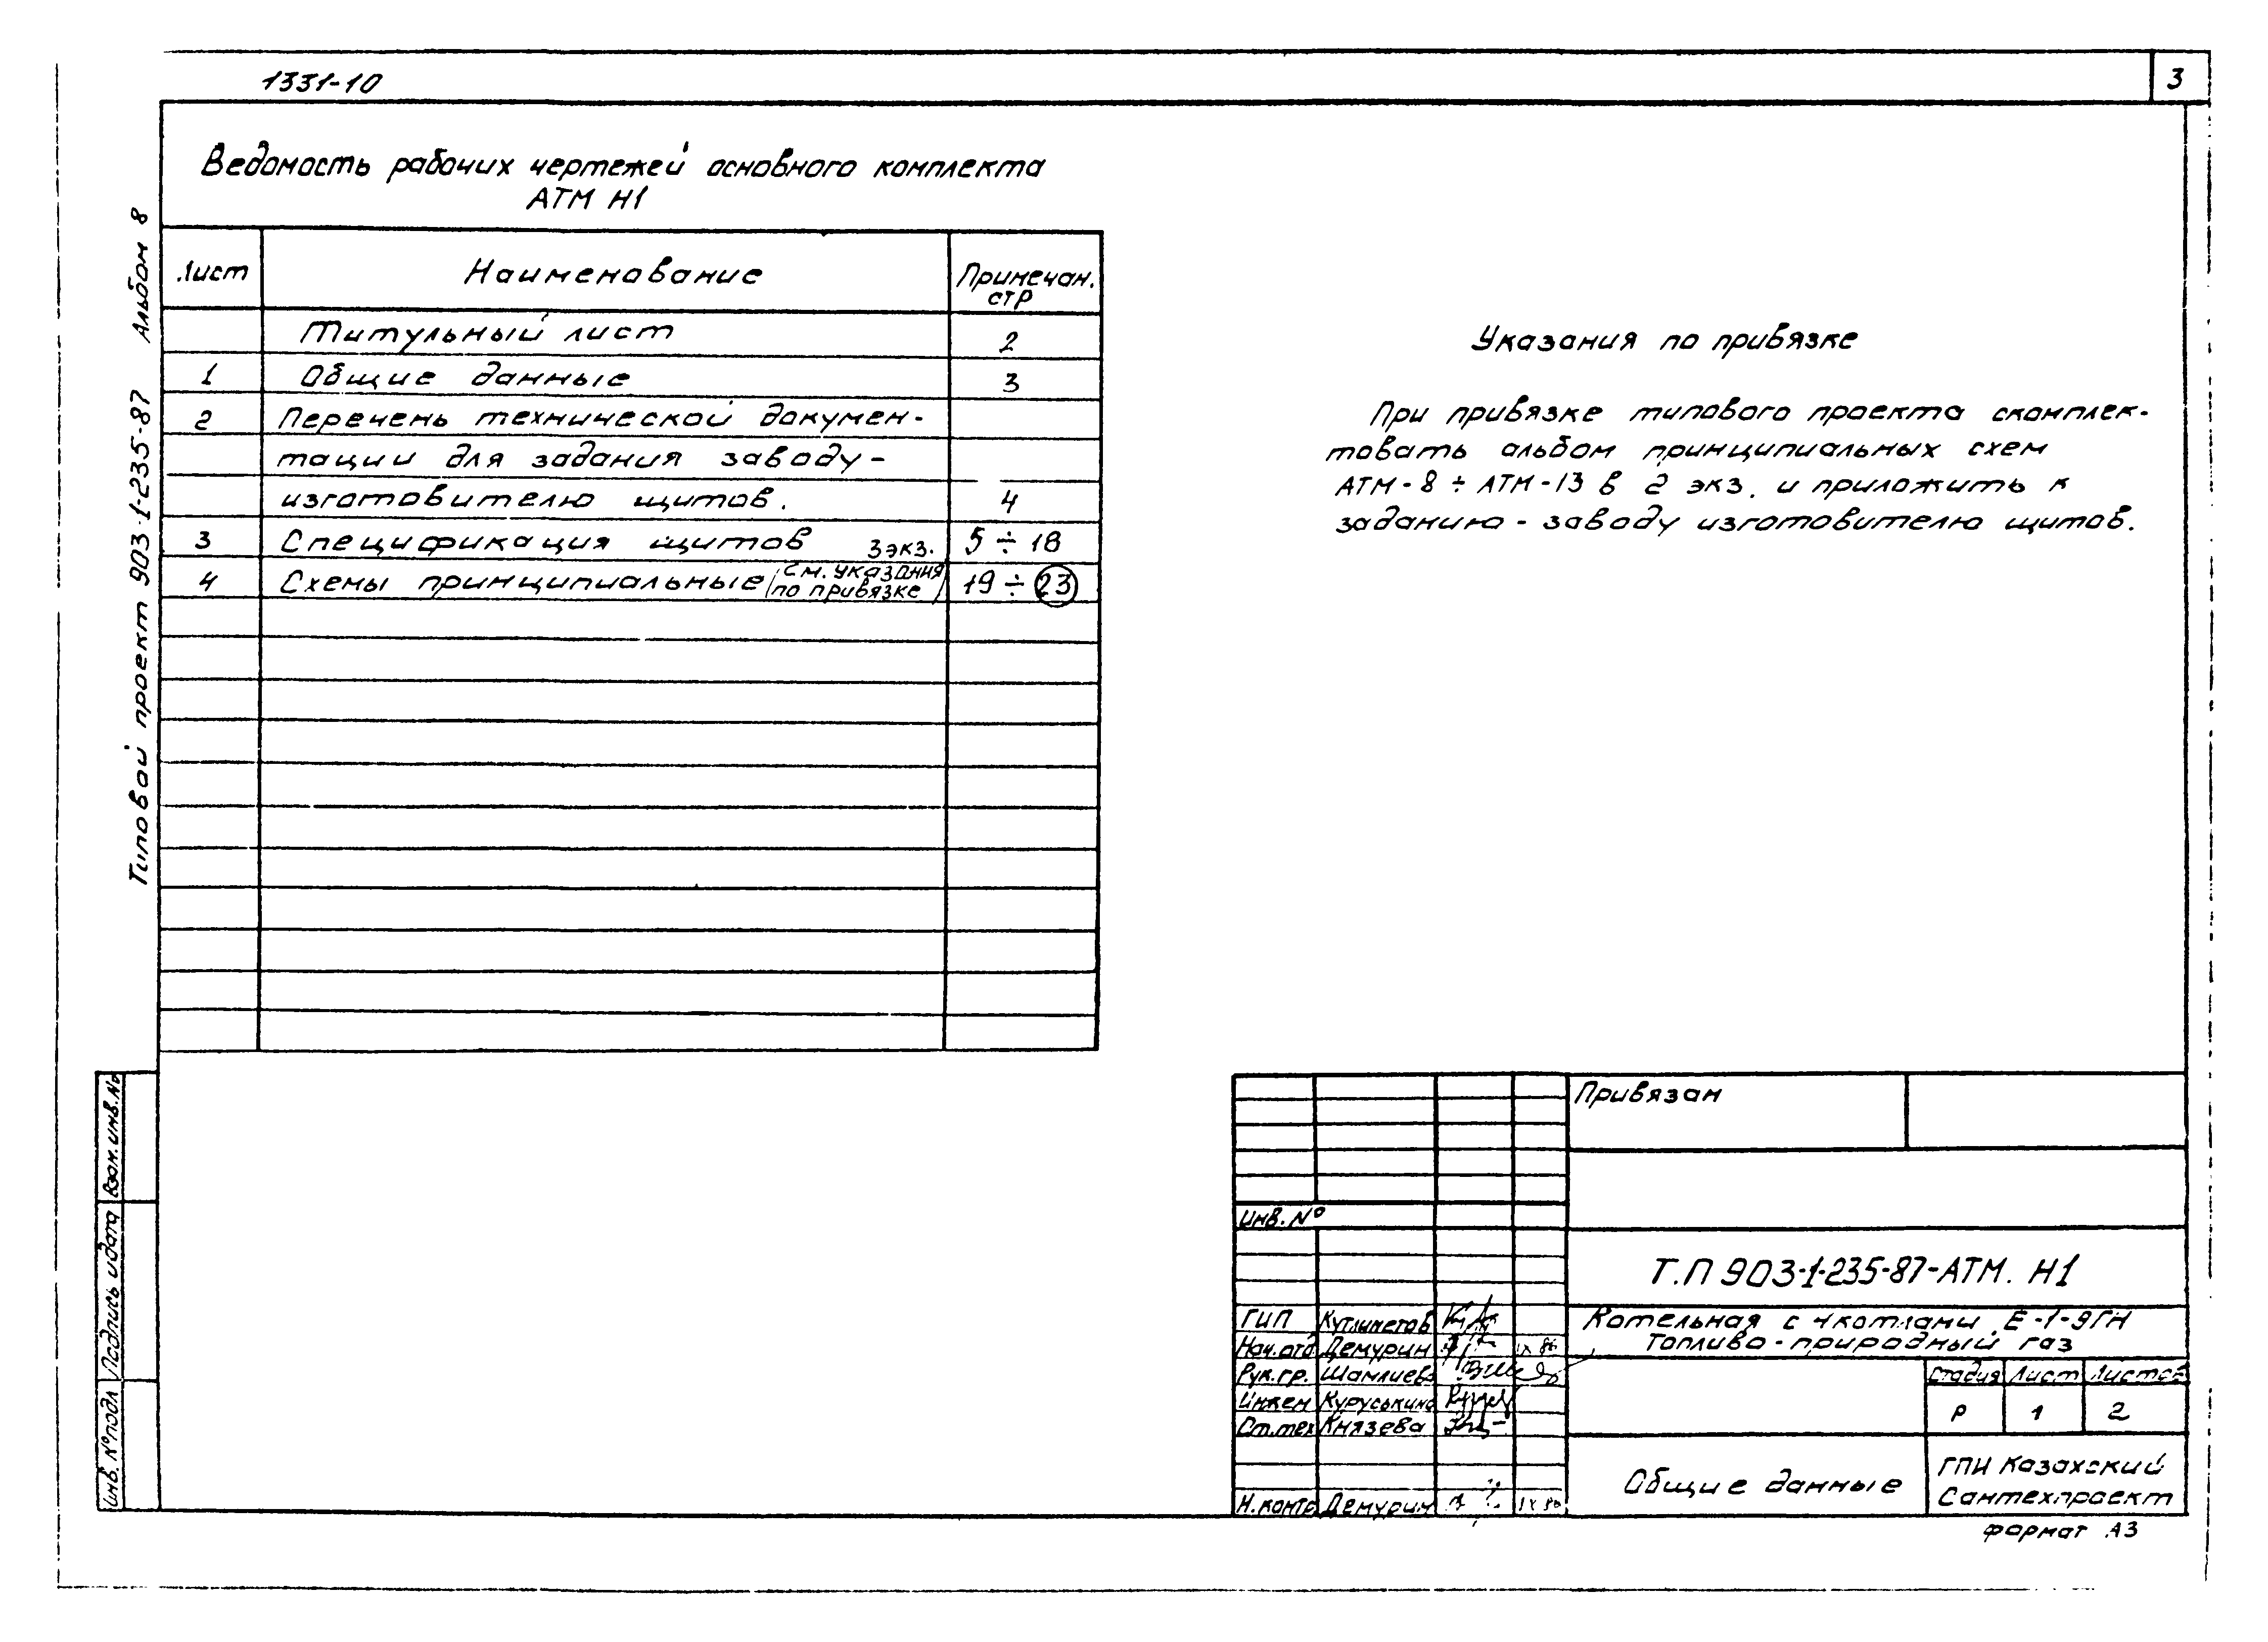 1331-10
3
Ведомость рабочих чертежей основного комплекта
АТМ Н1
Лист Наименование Примечан.
стр
Титульный лист 2
1 Общие данные 3
2 Перечень технической докумен-
тации для задания заводу-
изготовителю щитов. 4
3 Спецификация щитов 3 экз. 5 ÷ 18
4 Схемы принципиальные (см. указания
по привязке) 19 ÷ 23
Указания по привязке
При привязке типового проекта скомплек-
товать альбом принципиальных схем
АТМ-8 ÷ АТМ-13 в 2 экз. и приложить к
заданию - заводу изготовителю щитов.
Типовой проект 903-1-235-87 Альбом 8
Взам. инв. №
Подпись и дата
Инв. № подл
Привязан
Инв. №
Т.П 903-1-235-87-АТМ. Н1
ГИП Кутлиметов
Нач. отд Демурин IX 86
Рук. гр. Шамлиева
Инжен Куруськина
Ст. тех Князева
Н. контр Демурин IX 86
Котельная с 4 котлами Е-1-9ГН
Топливо - природный газ
Стадия Лист Листов
Р 1 2
Общие данные
ГПИ Казахский
Сантехпроект
формат А3